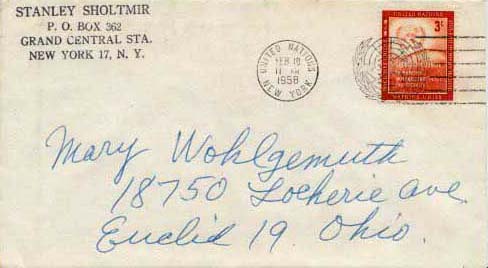 STANLEY SHOLTMIR
P. O. BOX 362
GRAND CENTRAL STA.
NEW YORK 17, N. Y.
UNITED NATIONS
FEB 18
11 AM
1958
NEW YORK
UNITED NATIONS
3¢
NATIONS UNIES
Mary Wohlgemuth
18750 Locherie ave.
Euclid 19 Ohio.